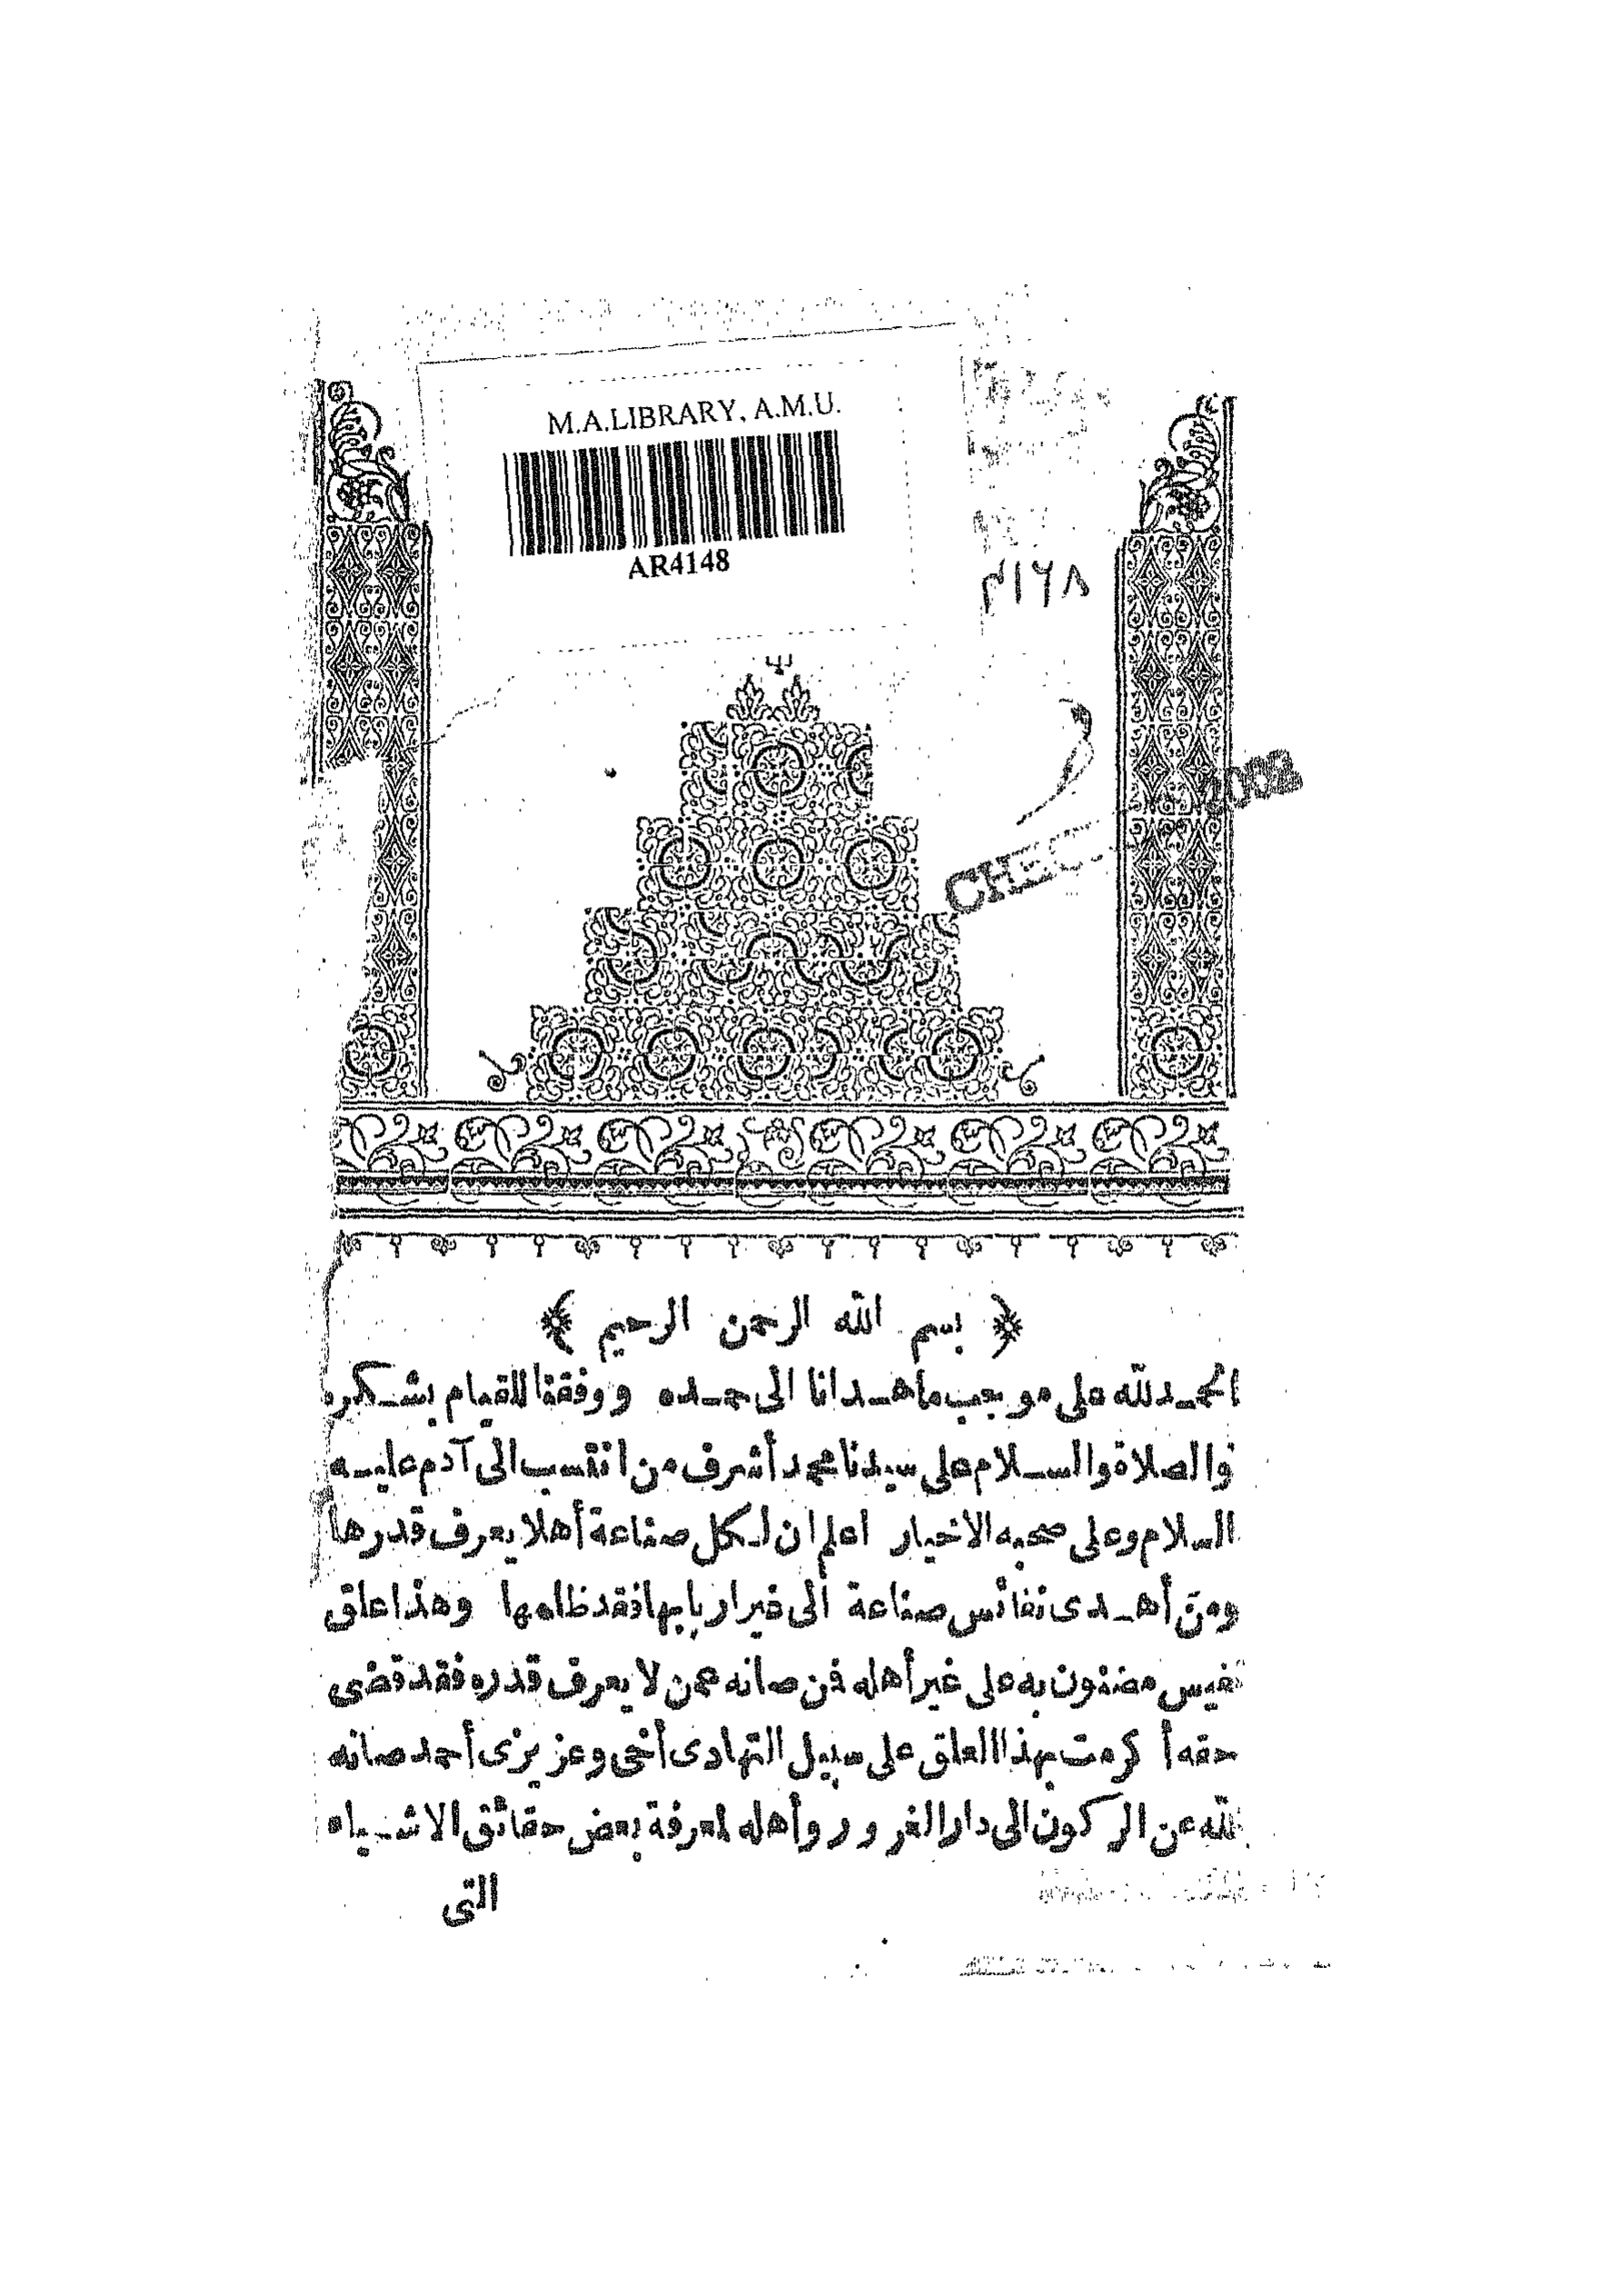 M.A.LIBRARY, A.M.U.
AR4148
٣١٤٨
2002
﴿ بسم الله الرحمن الرحيم ﴾
الحمد لله على موجب ما هدانا الى حمده ووفقنا للقيام بشكره
والصلاة والسلام على سيدنا محمد أشرف من انتسب الى آدم عليه
السلام وعلى صحبه الاخيار اعلم ان لكل صناعة أهلا يعرف قدرها
ومن أهدى نفائس صناعة الى غير اربابها فقد ظلمها وهذا علق
نفيس مضنون به على غير أهله فن صانه عمن لا يعرف قدره فقد قضى
حقه أكرمت بهذا العلق على سبيل التهادى أخى وعزيزى أحمد صانه
لله عن الركون الى دار الغرور وأهله لمعرفة بعض حقائق الاشياء
التى